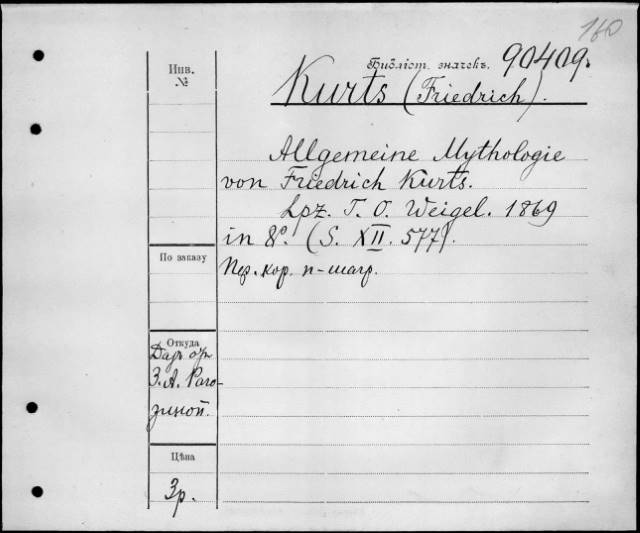 160
Библіот. значекъ. 90409.
Kurts (Friedrich).
Инв.
№
Allgemeine Mythologie
von Friedrich Kurts.
Lpz. T. O. Weigel. 1869
in 8°. (S. XII. 577).
По заказу
Пер. кор. п-шагр.
Откуда
Даръ отъ
З. А. Раго-
зиной.
Цѣна
3р.